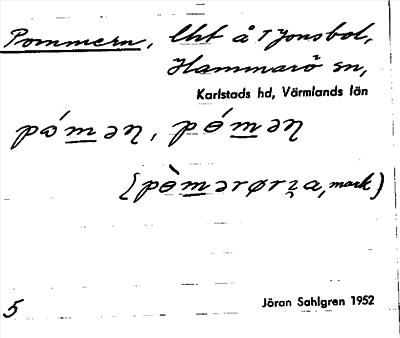 Pommern, lht å Tyonsbol,
Hammarö sn,
Karlstads hd, Värmlands län
pɷ́mən, pɵ́mən
(pɵ̀mərørʐa, mark)
5
Jöran Sahlgren 1952